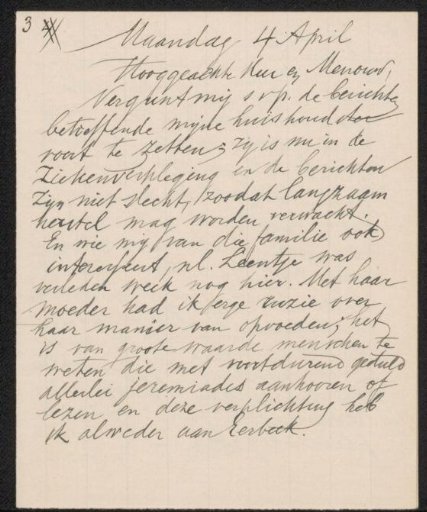 3
Maandag 4 April
Hooggeachte Heer en Mevrouw,
Vergunt mij s.v.p. de berichten
betreffende mijne huishoudster
voort te zetten; zij is nu in de
Ziekenverpleging en de berichten
zijn niet slecht, zoodat langzaam
herstel mag worden verwacht.
En wie mij van die familie ook
interesseert, nl. Leentje was
verleden week nog hier. Met haar
moeder had ik erge ruzie over
haar manier van opvoeden; het
is van groote waarde menschen te
weten die met voortdurend geduld
allerlei jeremiades aanhooren of
lezen en deze verplichting heb
ik alweder aan Eerbeek.